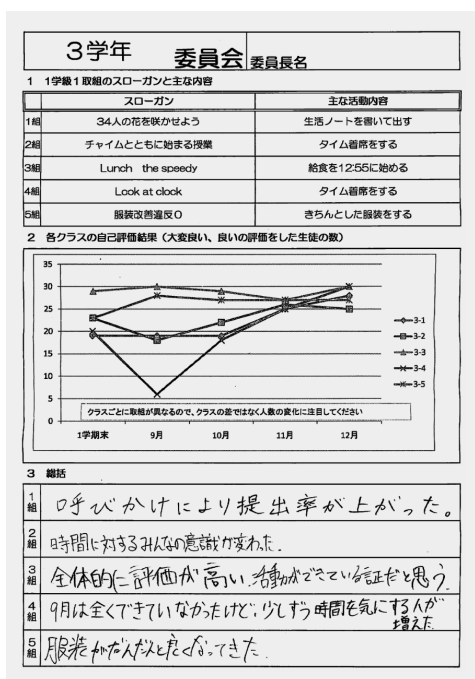 3学年 委員会 委員長名
1 1学級1取組のスローガンと主な内容
スローガン 主な活動内容
1組 34人の花を咲かせよう 生活ノートを書いて出す
2組 チャイムとともに始まる授業 タイム着席をする
3組 Lunch the speedy 給食を12:55に始める
4組 Look at clock タイム着席をする
5組 服装改善違反0 きちんとした服装をする
2 各クラスの自己評価結果（大変良い、良いの評価をした生徒の数）
35
30
25
20
15
10
5
0
3-1
3-2
3-3
3-4
3-5
クラスごとに取組が異なるので、クラスの差ではなく人数の変化に注目してください
1学期末 9月 10月 11月 12月
3 総括
1組 呼びかけにより提出率が上がった。
2組 時間に対するみんなの意識が変わった.
3組 全体的に評価が高い.活動ができている証だと思う.
4組 9月は全くできていなかったけど、少しずつ時間を気にする人が
増えた.
5組 服装がだんだんと良くなってきた.